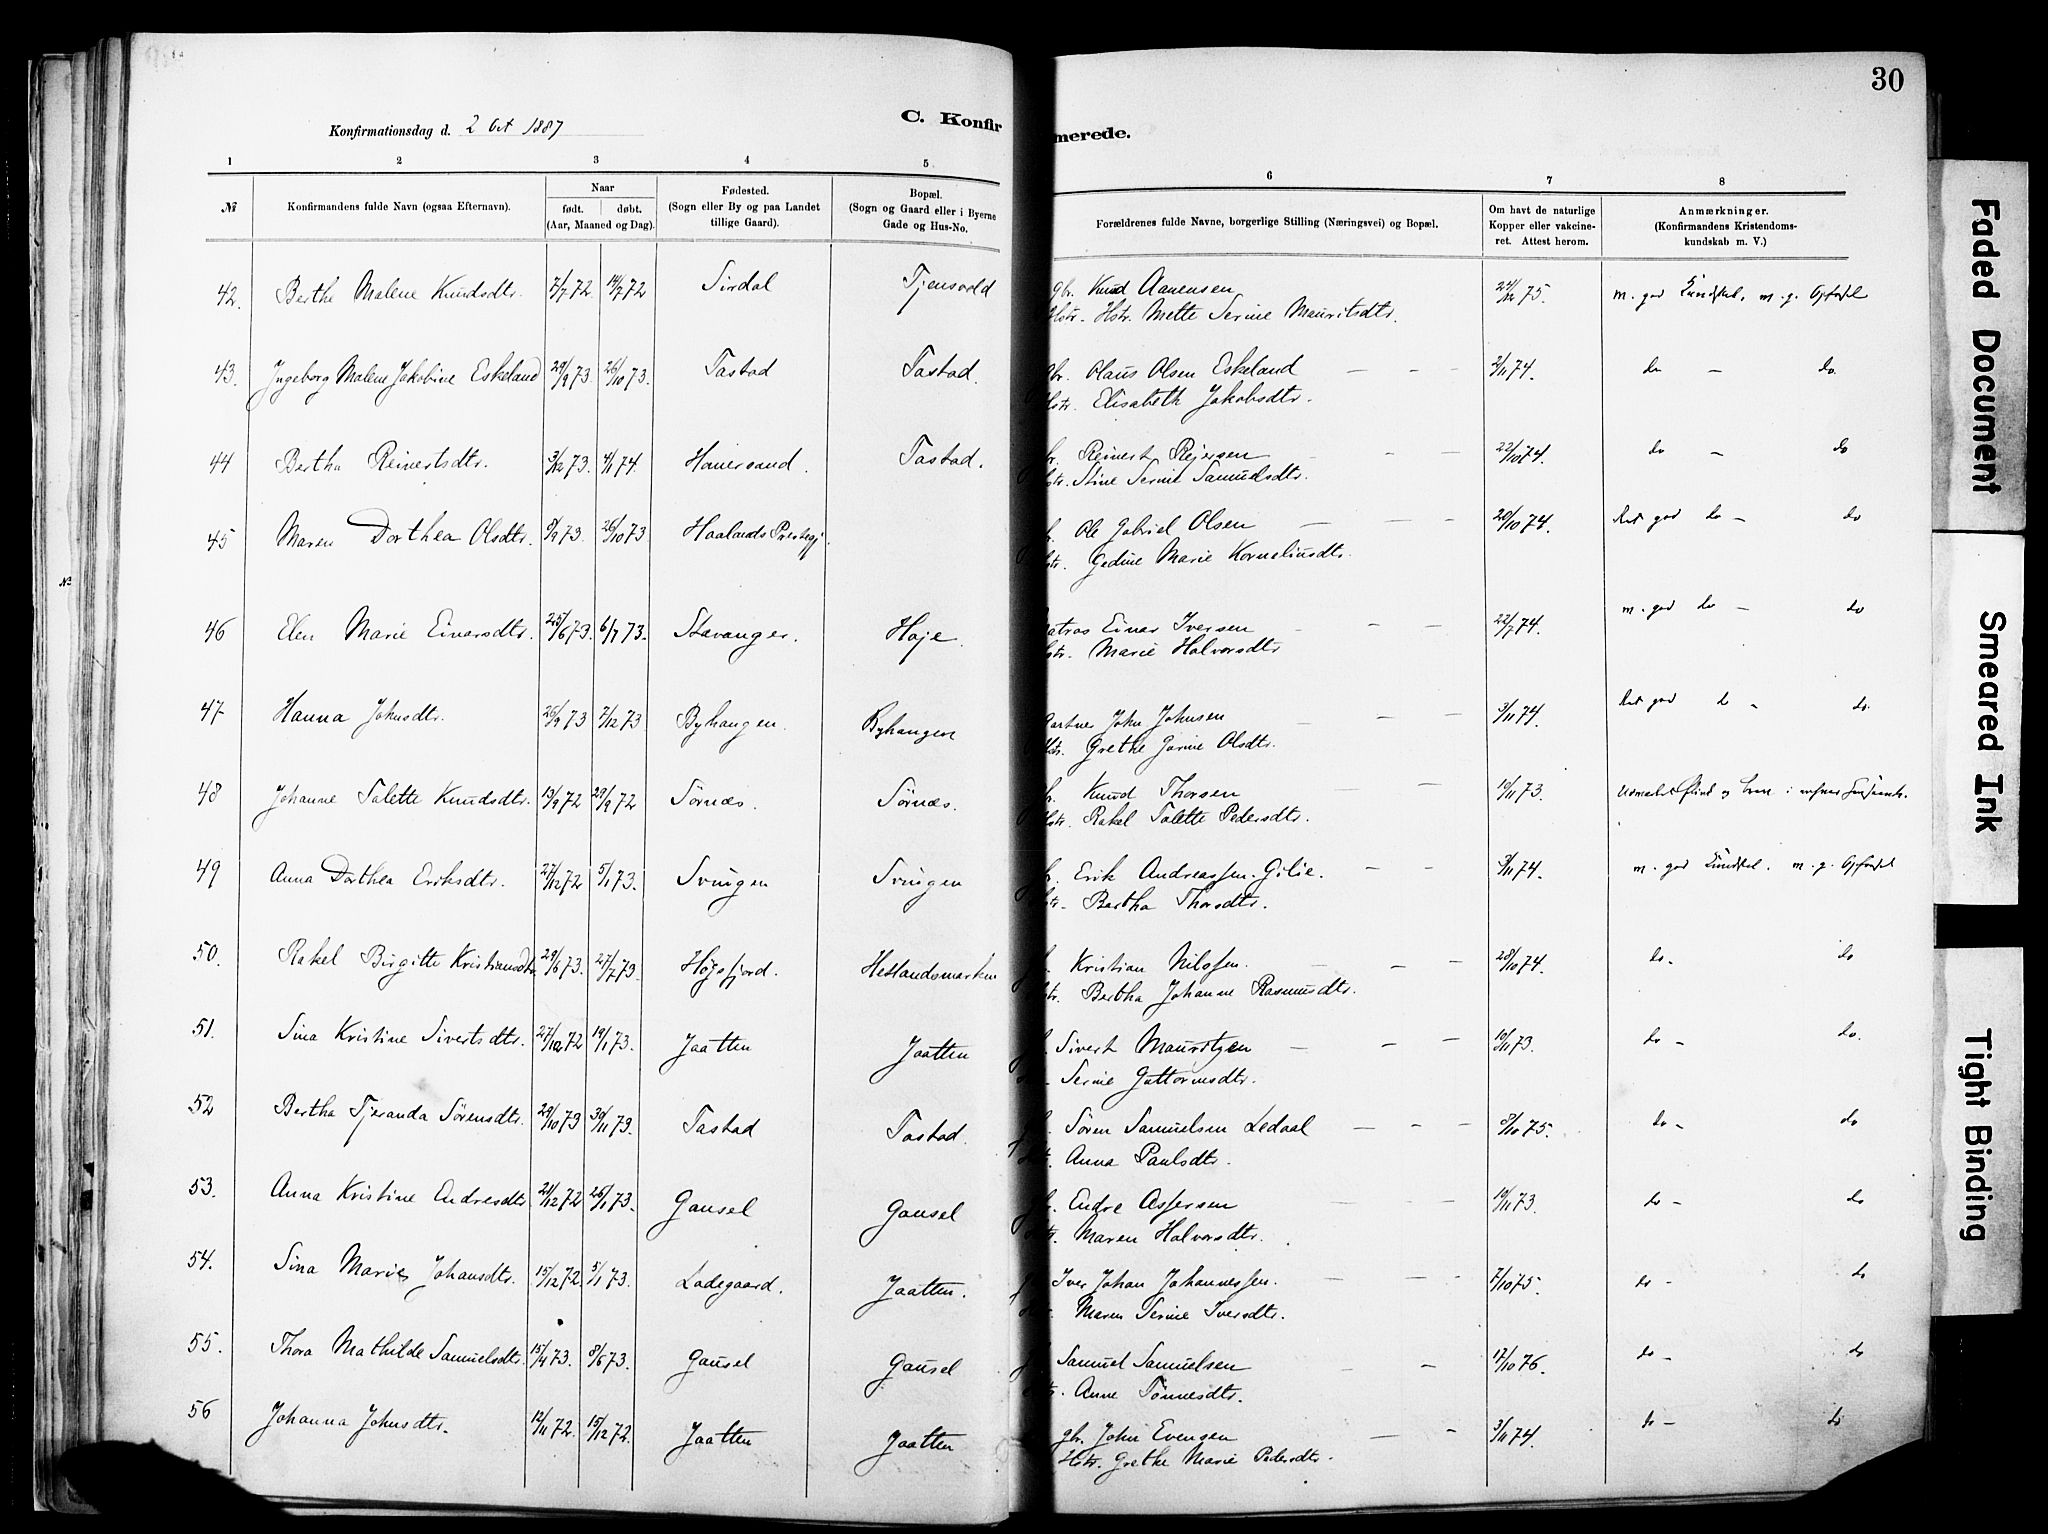 30
Konfirmationsdag d. 2 Oct 1887
C. Konfir
merede.
1 2 3 4 5 6 7 8
№
Konfirmandens fulde Navn (ogsaa Efternavn).
Naar
født. døbt.
(Aar, Maaned og Dag).
Fødested.
(Sogn eller By og paa Landet
tillige Gaard).
Bopæl.
(Sogn og Gaard eller i Byerne
Gade og Hus-No.
Forældrenes fulde Navne, borgerlige Stilling (Næringsvei) og Bopæl.
Om havt de naturlige
Kopper eller vakcine-
ret. Attest herom.
Anmærkninger.
(Konfirmandens Kristendoms-
kundskab m. V.)
42. Berthe Malene Knudsdtr. 7/7 72. 14/7 72 Sirdal Tjensvold gbr. Knud Aanensen 24/12 75. m. god Kundskab, m. g. Opførsel
Hstr. Mette Serine Mauritsdtr.
43. Ingeborg Malene Jakobine Eskeland 29/9 73 26/10 73. Tastad Tastad. gbr. Olaus Olsen Eskeland — — — 2/11 74. do — do.
Hstr. Elisabeth Jakobsdtr.
44 Bertha Reinertsdtr. 3/12 73. 4/1 74. Hanersand. Tastad. Reinert Rejersen — — 22/10 74. do — do
Stine Serine Samuelsdtr.
45 Maren Dorthea Olsdtr. 9/9 73. 26/10 73. Haalands Prestegj. Ole Gabriel Olsen — — — 20/10 74. Ret god do — do
Gedine Marie Korneliusdtr.
46 Elen Marie Einarsdtr. 25/6 73. 6/7 73. Stavanger. Høje. Matros Einar Iversen — — — 22/7 74. m. god do — do
Marie Halvorsdtr
47 Hanna Johnsdtr. 26/9 73 7/12 73. Byhaugen. Byhaugen Gartner John Johnsen — — — 3/11 74. Ret god do - do.
Hstr. Grethe Gurine Olsdtr.
48 Johanne Tolette Knudsdtr. 13/9 72 29/9 72 Sørnæs. Sørnæs. Knud Thorsen — 10/11 73.
Hstr. Rakel Tolette Pedersdtr.
49 Anna Dorthea Eriksdtr. 27/12 72 5/1 73. Svingen Svingen Erik Andreassen Gilie. — — 3/11 74. m. god Kundskab, m. g. Opførsel
Bertha Thorsdtr.
50. Rakel Birgitte Kristiansdtr. 29/6 73. 27/7 73. Høgsfjord. Hetlandsmarken Kristian Nilssen. — — — 28/10 74. do. do
Bertha Johanne Rasmusdtr.
51. Sina Kristine Sivertsdtr. 27/12 72 19/1 73. Jaatten Jaatten Sivert Mauritzen — — — 10/11 73. do — do.
Serine Guttormsdtr.
52 Bertha Tjeranda Sørensdtr. 29/10 73 30/11 73. Tastad Tastad. Søren Samuelsen Ledaal — — — 8/10 75. do — do
Anna Paulsdtr.
53. Anna Kristine Endresdtr 21/12 72 26/1 73. Gausel Gausel Endre Asserson — — — 10/11 73. do — do
Maren Halvorsdtr.
54. Sina Marie Johansdtr. 15/12 72. 5/1 73. Ladegaard. Jaatten. Iver Johan Johannessen. — — — 7/10 75. do — do
Maren Serine Iversdtr.
55. Thora Mathilde Samuelsdtr. 15/4 73. 8/6 73. Gausel Gausel Samuel Samuelsen — — 17/10 76. do — do
Anne Tønnesdtr.
56 Johanna Johnsdtr. 12/11 72. 15/12 72. Jaatten Jaatten gbr. John Evensen — - 3/11 74. do — do
Hstr. Grethe Marie Pedersdtr.
Faded Document
Smeared Ink
Tight Binding